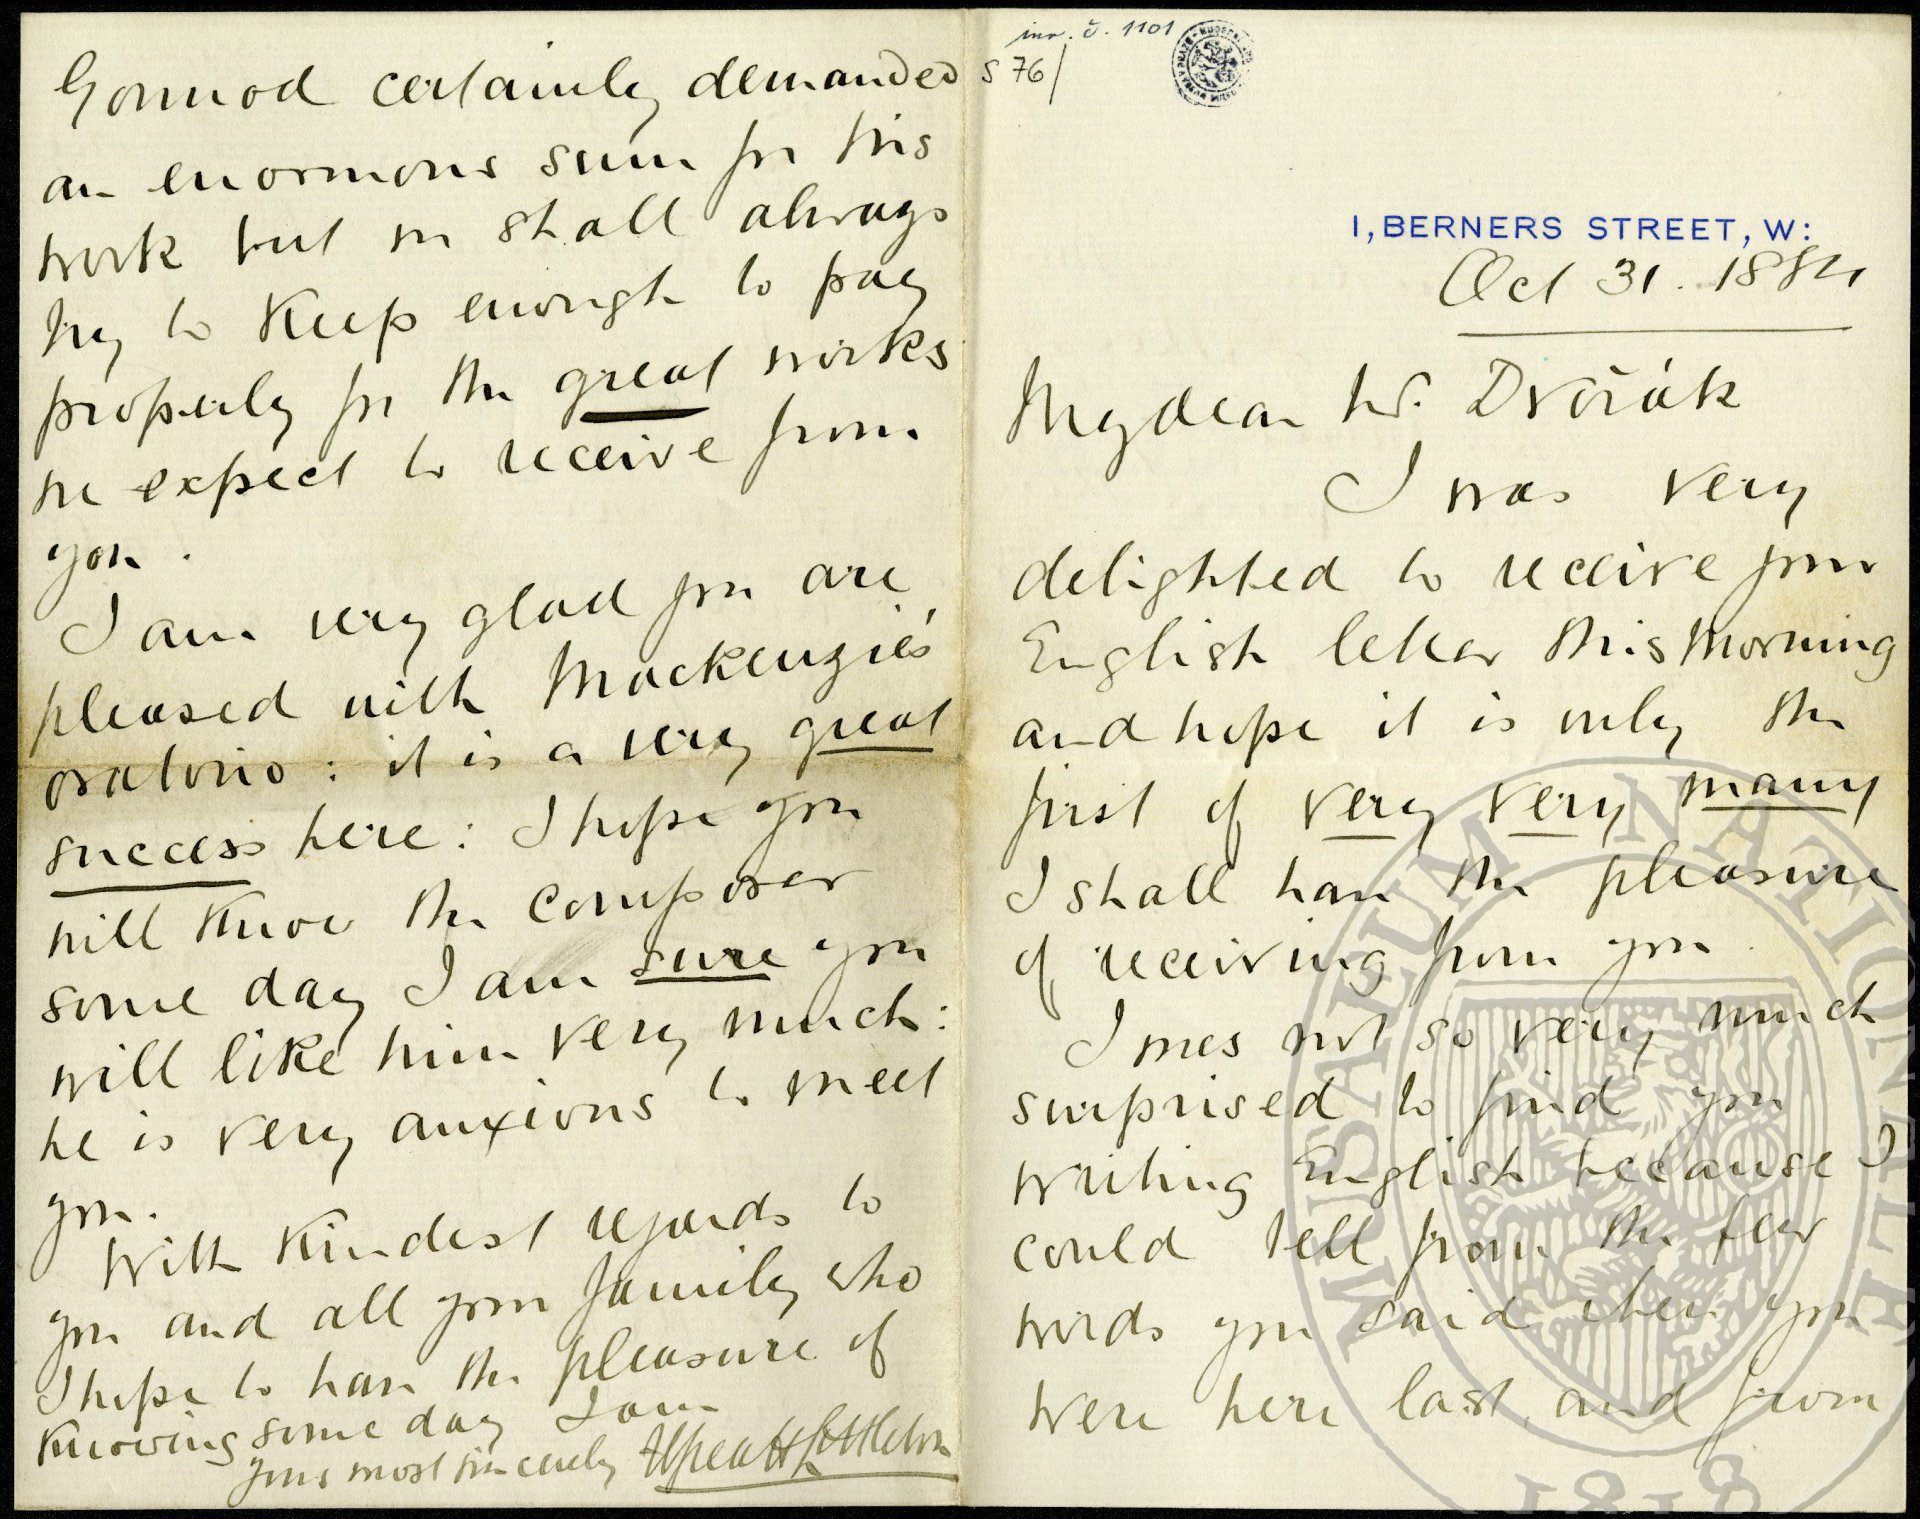 inv. č. 1101
S 76/
1, BERNERS STREET, W:
Oct 31. 1884
My dear Mr. Dvořák
I was very
delighted to receive your
English letter this morning
and hope it is only the
first of very very many
I shall have the pleasure
of receiving from you
I was not so very much
surprised to find you
writing English because I
could tell from the few
words you said when you
were here last, and from
Gounod certainly demanded
an enormous sum for his
work but we shall always
try to keep enough to pay
properly for the great works
we expect to receive from
you.
I am very glad you are
pleased with Mackenzie's
oratorio: it is a very great
success here: I hope you
will know the composer
some day I am sure you
will like him very much:
he is very anxious to meet
you.
With kindest regards to
you and all your family who
I hope to have the pleasure of
knowing some day I am
yours most sincerely Alfred H Littleton
MUSAEUM NATIONALE
1818